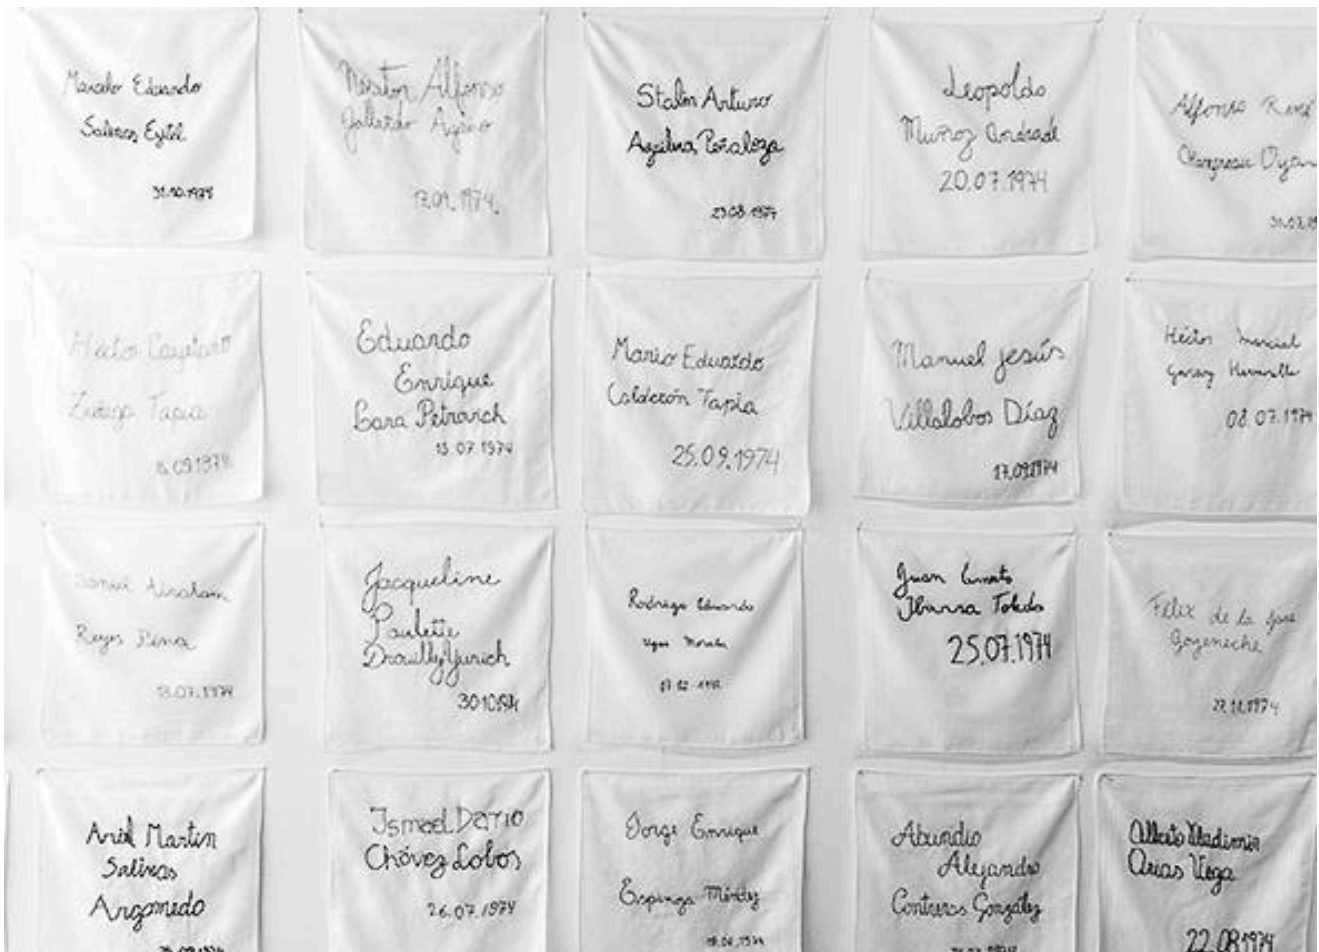 Marcelo Eduardo
Salinas Eytel
31.10.1974
Néstor Alfonso
Gallardo Agüero
Stalin Arturo
Aguilera Peñaloza
Leopoldo
Muñoz Andrade
20.07.1974
Alfonso René
Héctor Cayetano
Zúñiga Tapia
15.09.1974
Eduardo
Enrique
Lara Petrovich
15.07.1974
Mario Eduardo
Calderón Tapia
25.09.1974
Manuel jesús
Villalobos Díaz
17.09.1974
Héctor
Garay
08.07.1974
Daniel Abraham
Reyes Piña
Jacqueline
Paulette
Drouilly Yurich
30.10.1974
Rodrigo Eduardo
Ugas Morales
Juan Ernesto
Ibarra Toledo
25.07.1974
Félix de la Jara
Goyeneche
27.11.1974
Ariel Martin
Salinas
Argomedo
Ismael Darío
Chávez Lobos
26.07.1974
Jorge Enrique
Espinoza Méndez
Abundio
Alejandro
Contreras González
Alberto Bladimir
Arias Vega
22.08.1974